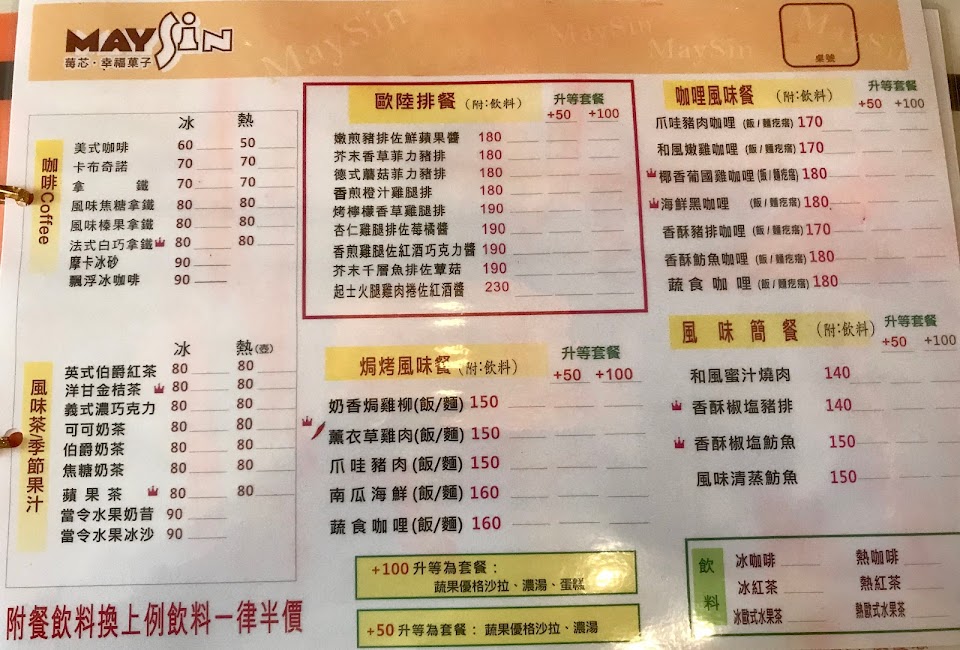 MAYSiN
苺芯・幸福菓子
MaySin
MaySin
MaySin
MaySin
桌號
咖啡Coffee
冰 熱
美式咖啡 60 50
卡布奇諾 70 70
拿 鐵 70 70
風味焦糖拿鐵 80 80
風味榛果拿鐵 80 80
法式白巧拿鐵 80 80
摩卡冰砂 90
飄浮冰咖啡 90
風味茶/季節果汁
冰 熱(壺)
英式伯爵紅茶 80 80
洋甘金桔茶 80 80
義式濃巧克力 80 80
可可奶茶 80 80
伯爵奶茶 80 80
焦糖奶茶 80 80
蘋果茶 80 80
當令水果奶昔 90
當令水果冰沙 90
附餐飲料換上例飲料一律半價
歐陸排餐 (附:飲料) 升等套餐
+50 +100
嫩煎豬排佐鮮蘋果醬 180
芥末香草菲力豬排 180
德式蘑菇菲力豬排 180
香煎橙汁雞腿排 180
烤檸檬香草雞腿排 190
杏仁雞腿排佐莓橘醬 190
香煎雞腿佐紅酒巧克力醬 190
芥末千層魚排佐蕈菇 190
起士火腿雞肉捲佐紅酒醬 230
焗烤風味餐 (附:飲料) 升等套餐
+50 +100
奶香焗雞柳(飯/麵) 150
薰衣草雞肉(飯/麵) 150
爪哇豬肉(飯/麵) 150
南瓜海鮮(飯/麵) 160
蔬食咖哩(飯/麵) 160
+100 升等為套餐：
蔬果優格沙拉、濃湯、蛋糕
+50 升等為套餐： 蔬果優格沙拉、濃湯
咖哩風味餐 (附:飲料) 升等套餐
+50 +100
爪哇豬肉咖哩 (飯/麵疙瘩) 170
和風嫩雞咖哩 (飯/麵疙瘩) 170
椰香葡國雞咖哩(飯/麵疙瘩) 180
海鮮黑咖哩 (飯/麵疙瘩) 180
香酥豬排咖哩 (飯/麵疙瘩) 170
香酥魴魚咖哩 (飯/麵疙瘩) 180
蔬食咖哩 (飯/麵疙瘩) 180
風味簡餐 (附:飲料) 升等套餐
+50 +100
和風蜜汁燒肉 140
香酥椒塩豬排 140
香酥椒塩魴魚 150
風味清蒸魴魚 150
飲料
冰咖啡 熱咖啡
冰紅茶 熱紅茶
冰歐式水果茶 熱歐式水果茶